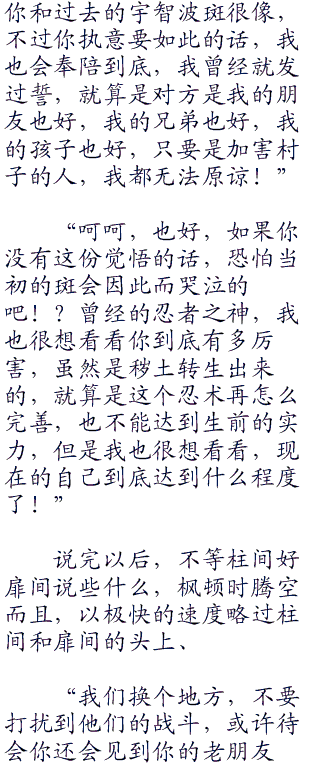 你和过去的宇智波斑很像，
不过你执意要如此的话，我
也会奉陪到底，我曾经就发
过誓，就算是对方是我的朋
友也好，我的兄弟也好，我
的孩子也好，只要是加害村
子的人，我都无法原谅！”
“呵呵，也好，如果你
没有这份觉悟的话，恐怕当
初的斑会因此而哭泣的
吧！？曾经的忍者之神，我
也很想看看你到底有多厉
害，虽然是秽土转生出来
的，就算是这个忍术再怎么
完善，也不能达到生前的实
力，但是我也很想看看，现
在的自己到底达到什么程度
了！”
说完以后，不等柱间好
扉间说些什么，枫顿时腾空
而且，以极快的速度略过柱
间和扉间的头上、
“我们换个地方，不要
打扰到他们的战斗，或许待
会你还会见到你的老朋友